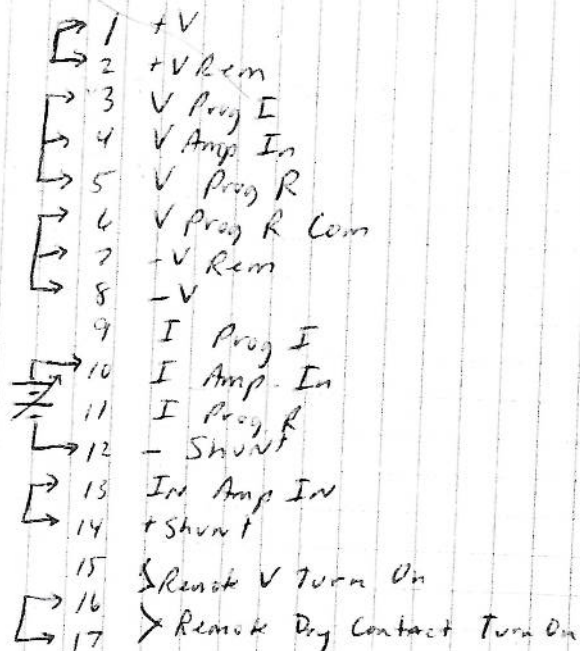 1 +V
2 +V Rem
3 V Prog I
4 V Amp In
5 V Prog R
6 V Prog R Com
7 -V Rem
8 -V
9 I Prog I
10 I Amp In
11 I Prog R
12 - Shunt
13 In Amp IN
14 + Shunt
15 Remote V Turn On
16
17 Remote Dry Contact Turn On